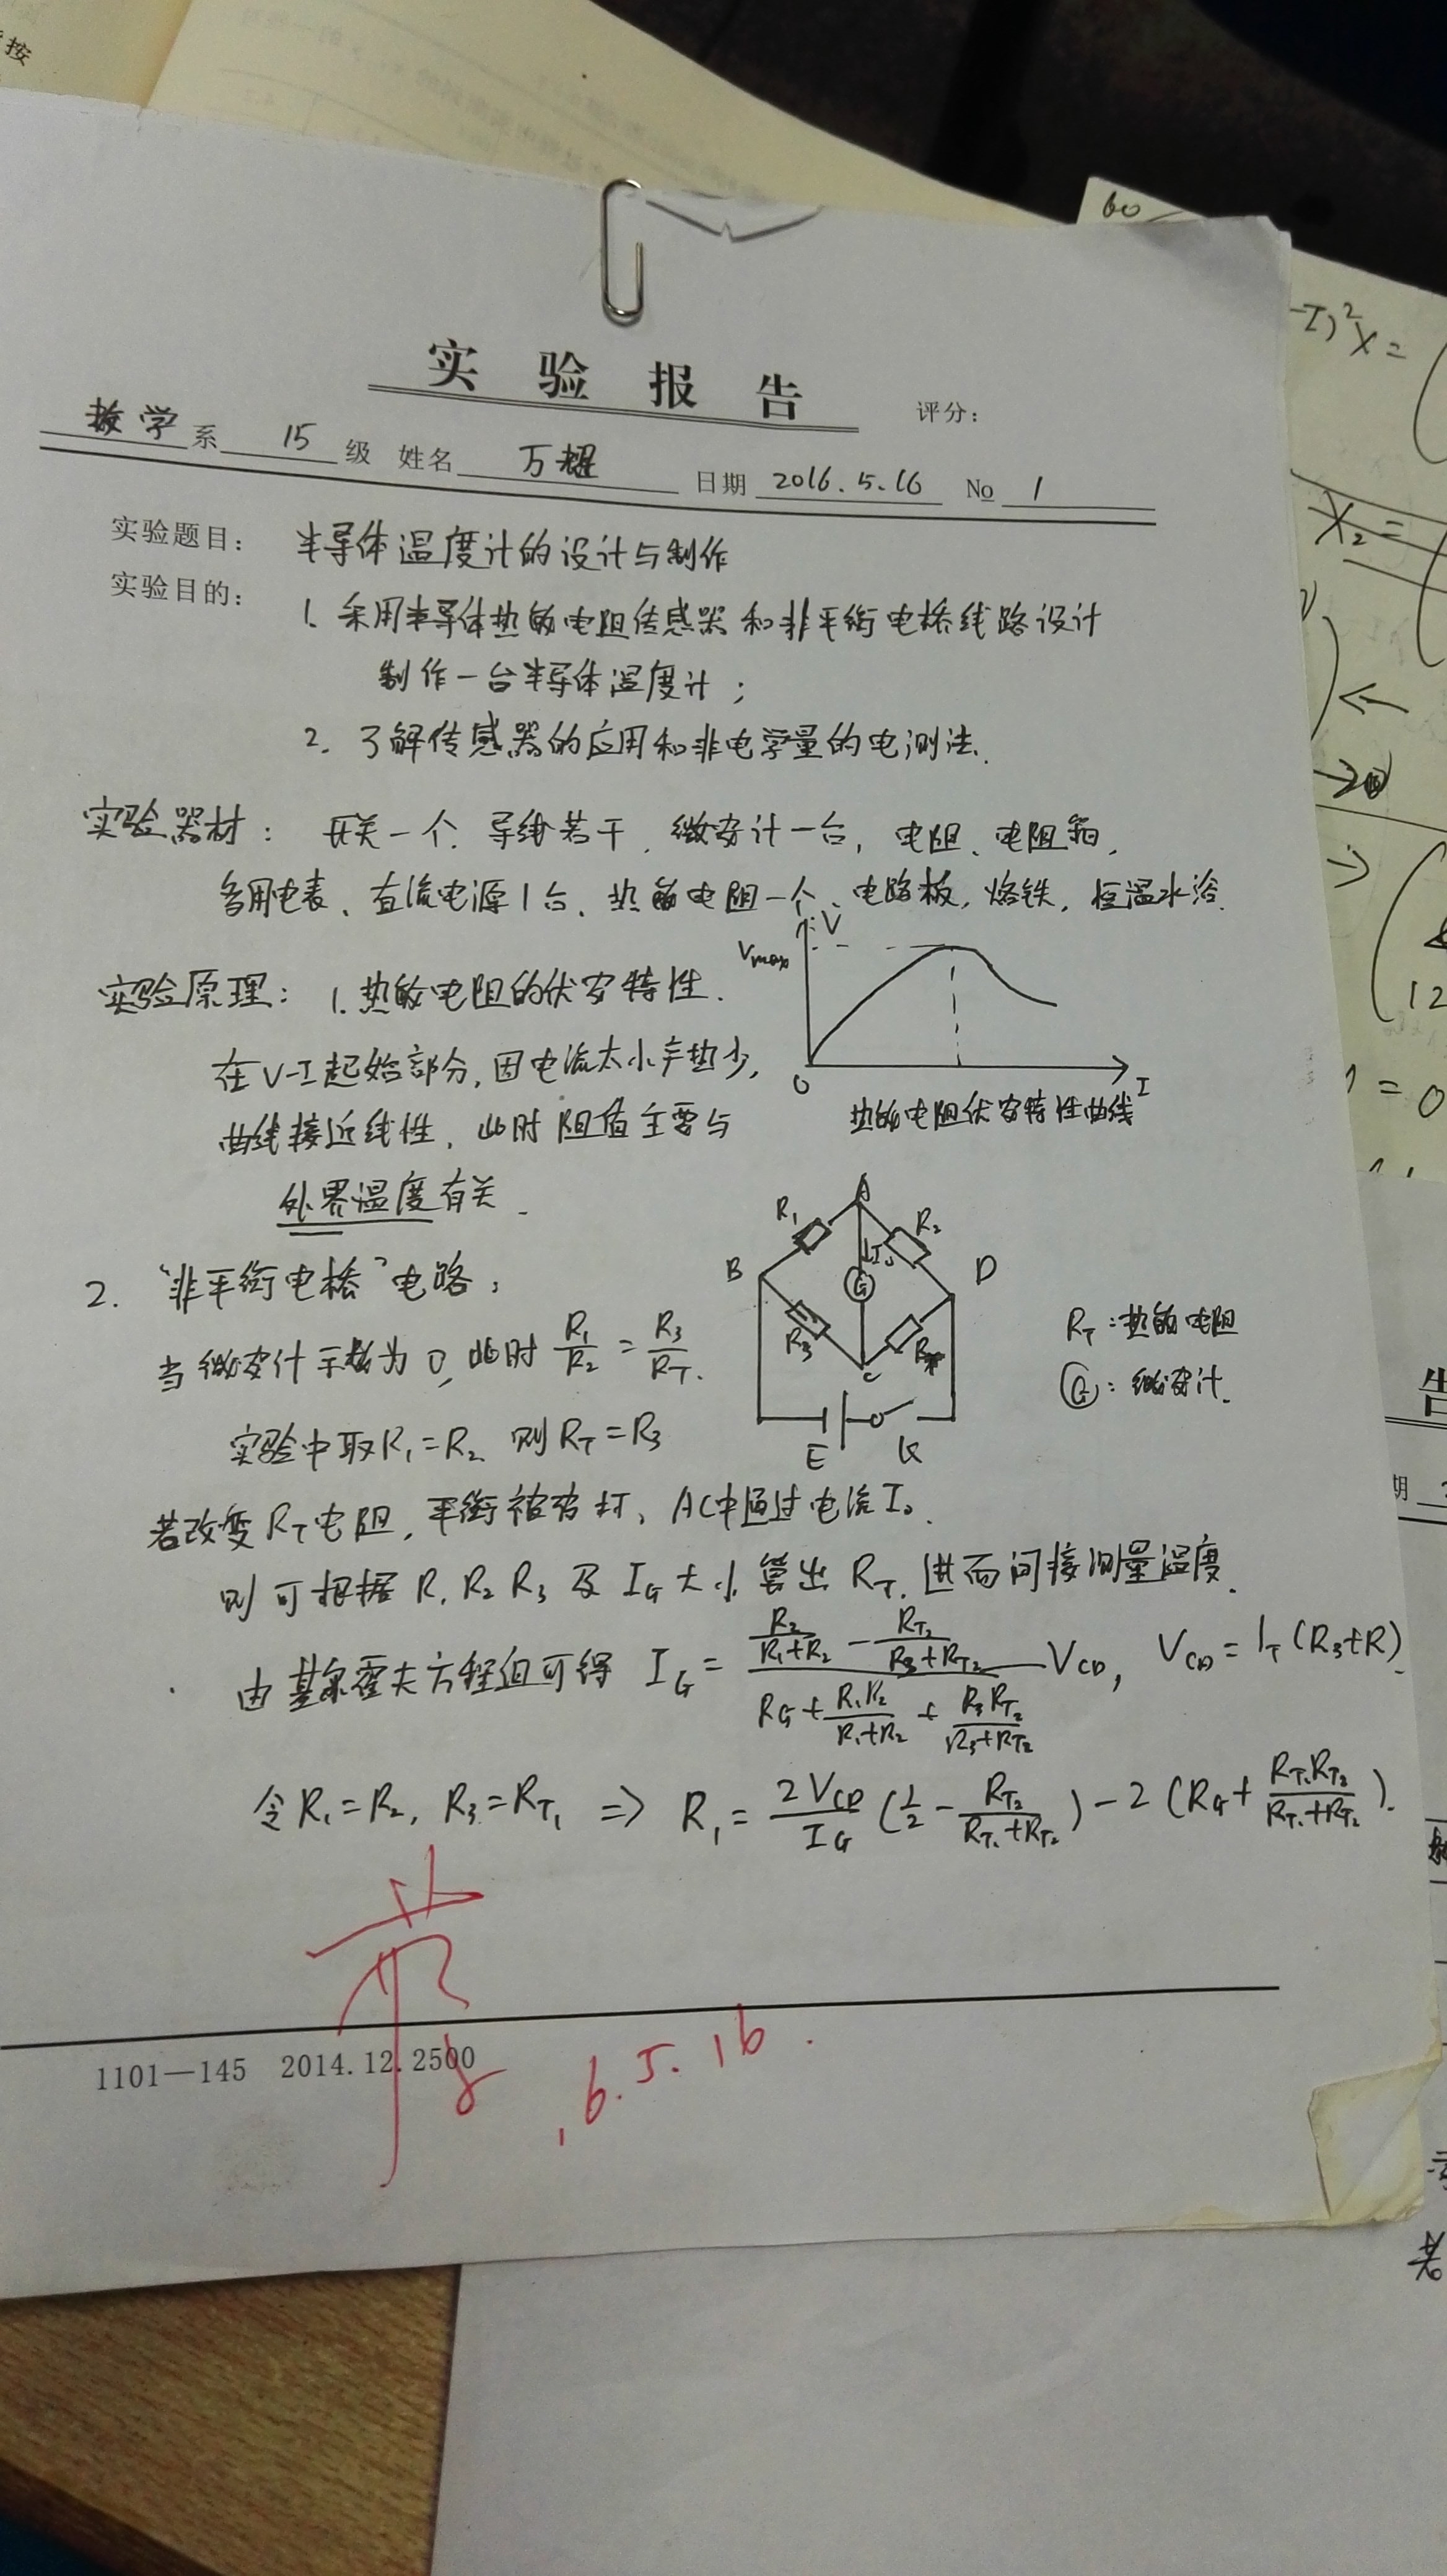 实验报告
评分:
数学系 15级 姓名 万耀 日期 2016.5.16 No 1
实验题目: 半导体温度计的设计与制作
实验目的: 1. 采用半导体热敏电阻传感器和非平衡电桥线路设计
制作一台半导体温度计;
2. 了解传感器的应用和非电学量的电测法.
实验器材: 开关一个. 导线若干, 微安计一台, 电阻、电阻箱,
多用电表、直流电源1台、热敏电阻一个、电路板, 烙铁, 恒温水浴.
实验原理: 1. 热敏电阻的伏安特性.
V
Vmax
O
I
热敏电阻伏安特性曲线
在V-I起始部分, 因电流太小产热少,
曲线接近线性, 此时阻值主要与
外界温度有关.
2. "非平衡电桥"电路:
A
R₁
R₂
B
D
G
R₃
C
E
K
R_T: 热敏电阻
G: 微安计.
当微安计示数为0, 此时 R₁/R₂ = R₃/R_T.
实验中取R₁=R₂ 则R_T=R₃
若改变R_T电阻, 平衡被打, AC中通过电流I₀.
则可根据 R₁ R₂ R₃ 及 I_G 大小算出 R_T. 进而间接测量温度.
由基尔霍夫方程组可得 I_G = (R₂/(R₁+R₂) - R_T₂/(R₃+R_T₂)) / (R_G + R₁R₂/(R₁+R₂) + R₃R_T₂/(R₃+R_T₂)) V_CD, V_CD = I_T(R₃+R).
令R₁=R₂, R₃=R_T₁ => R₁ = 2V_CD/I_G (1/2 - R_T₂/(R_T₁+R_T₂)) - 2(R_G + R_T₁R_T₂/(R_T₁+R_T₂)).
16.5.16.
1101—145 2014.12.2500
60
-I)²X=
X₂=
12
=0
告
期